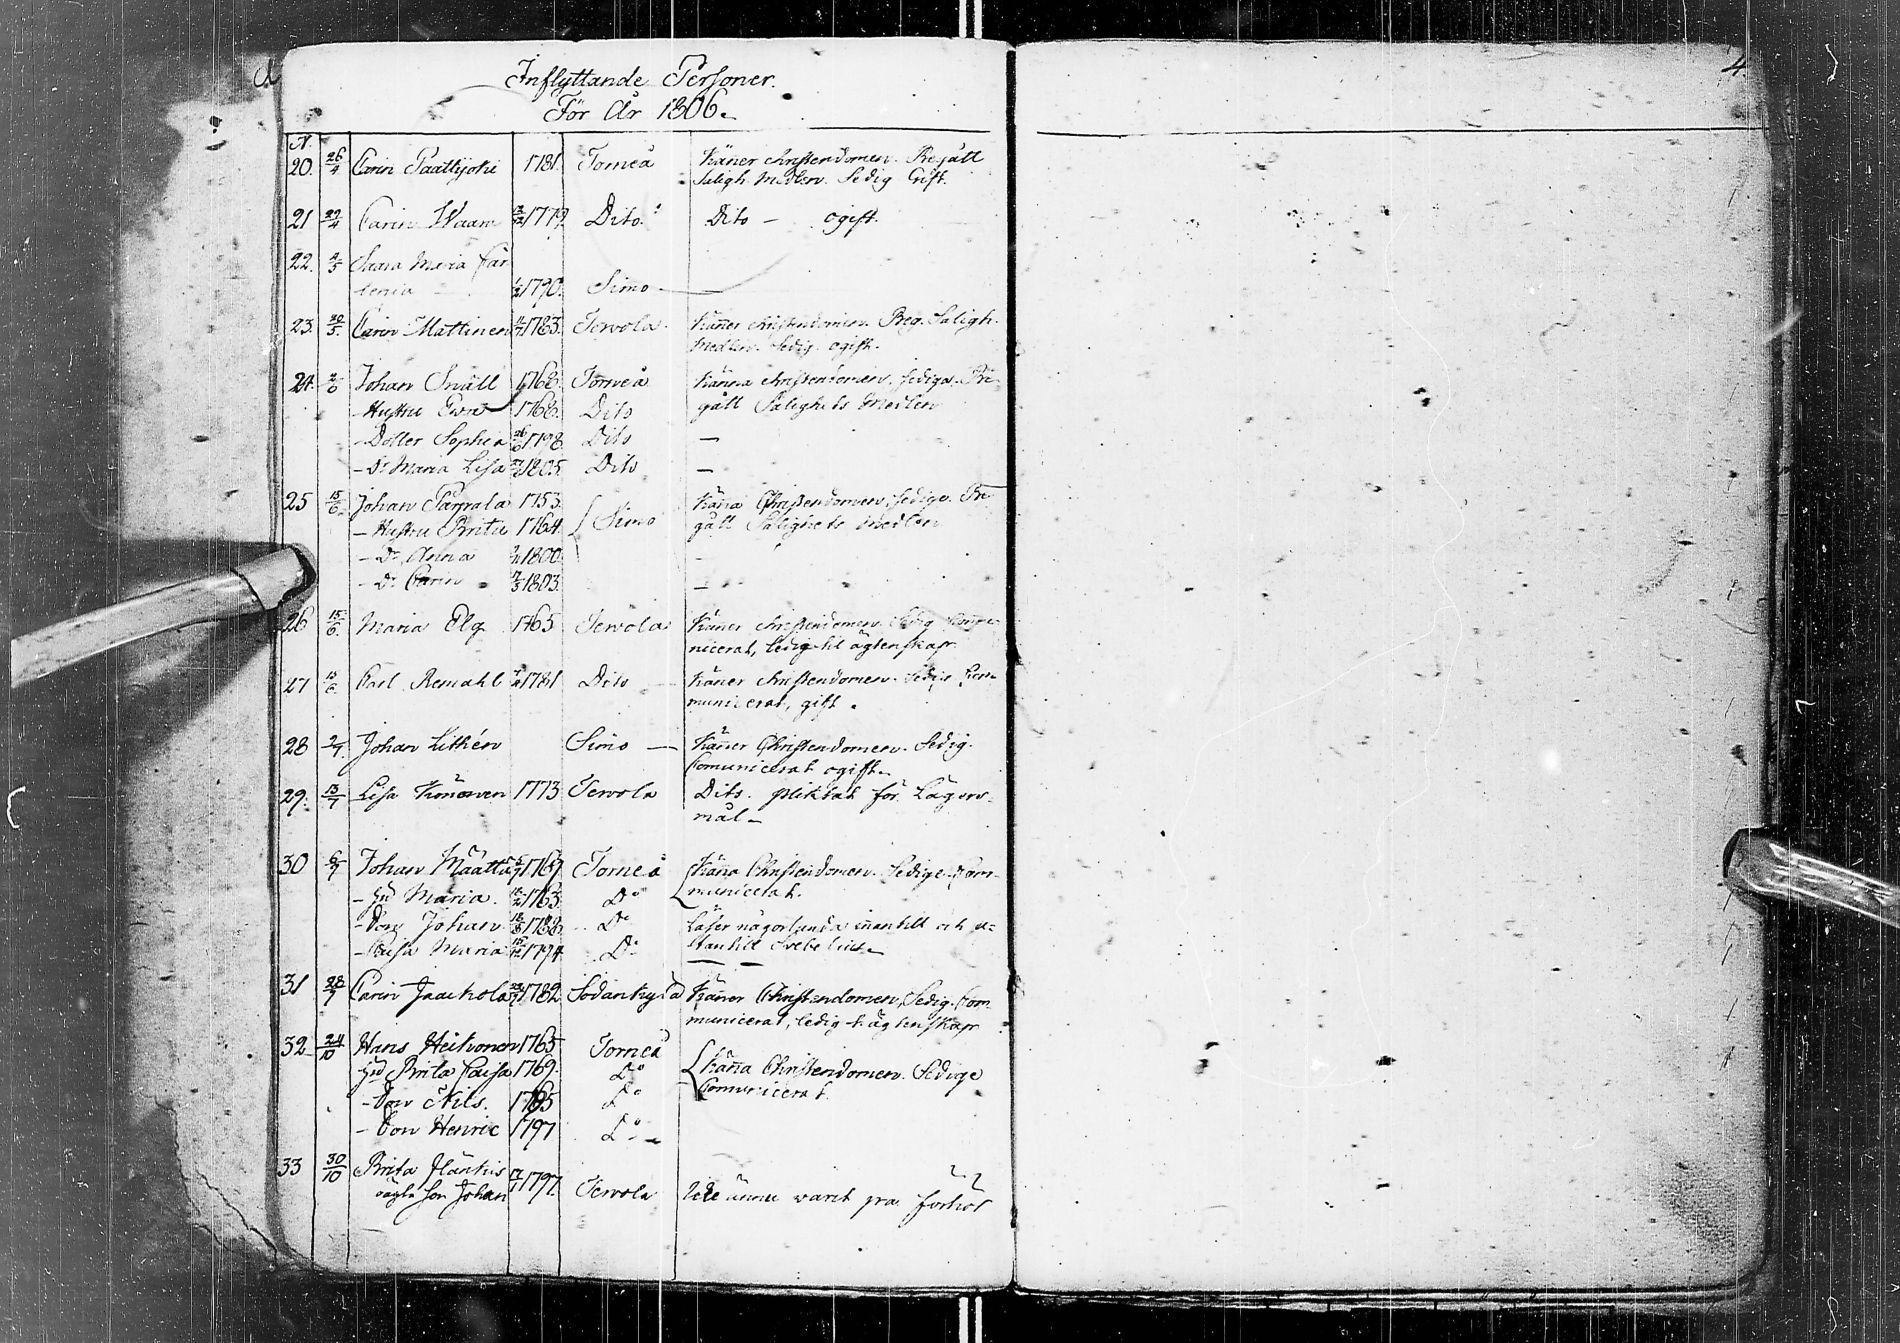 Inflyttande Personer.
För År 1806.
4
N.
20. 26/4 Carin Paattijoki 1781. Torneå Känner christendomen. Begått
Saligh. Medlen. Ledig Gift.
21 29/4 Carin Waara 1779. Dito. Dito - ogift.
22. 4/5 Saara Maria Car
lenia 1790. Simo
23. 30/5. Carin Mattinen 1783. Tervola. Känner christendomen. Beg. Saligh.
Medlen. Ledig. ogift.
24. Johan Snäll 1768. Torneå Känna christendomen. Lediga. Be
- Hustru Ewa 1768. Dito gått Salighets Medlen
- Dotter Sophia 1798 Dito -
- Dr Maria Lisa 1805. Dito -
25 15/6. Johan Parrala 1753. Simo Känna Christendomen, Ledige. Be
- Hustru Brita 1764. gått Salighets Medlen
- Dr Anna 1800. -
- Dr Carin 1803. -
26 15/6. Maria Elg 1765 Tervola Känner christendomen. Ledig Comu-
nicerat, ledig til ägtenskap.
27 15/6. Carl Remahl 1781 Dito - Känner christendomen. Ledig Com
municerat, gift.
28 2/7. Johan Lithén Simo - Känner Christendomen. Ledig.
Comunicerat ogift.
29. 13/7 Lisa 1773 Tervola Dito. pliktat för Lägers-
mål -
30 6/9 Johan Määttä 1767 Torneå Känna Christendomen. Ledige. Com-
- Hu Maria. 1763. Do municerat.
- Son Johan 1788. Do Läser någorlunda innantill och u-
- Caisa Maria 1794 Do tantill Svebelius.
31 28/9 Carin Jaackola 1782 Sodankylä Känner Christendomen, Ledig. Com
municerat, ledig t. ägtenskap
32 24/10 Hans Heikonen 1765 Torneå Känna Christendomen. Ledige
Hu Brita Caisa 1769. Do Comunicerat.
- Son Nils. 1785 Do
- Son Henric 1797 Do
33 30/10 Brita
oägta son Johan 1797. Tervola Icke ännu warit på förhör